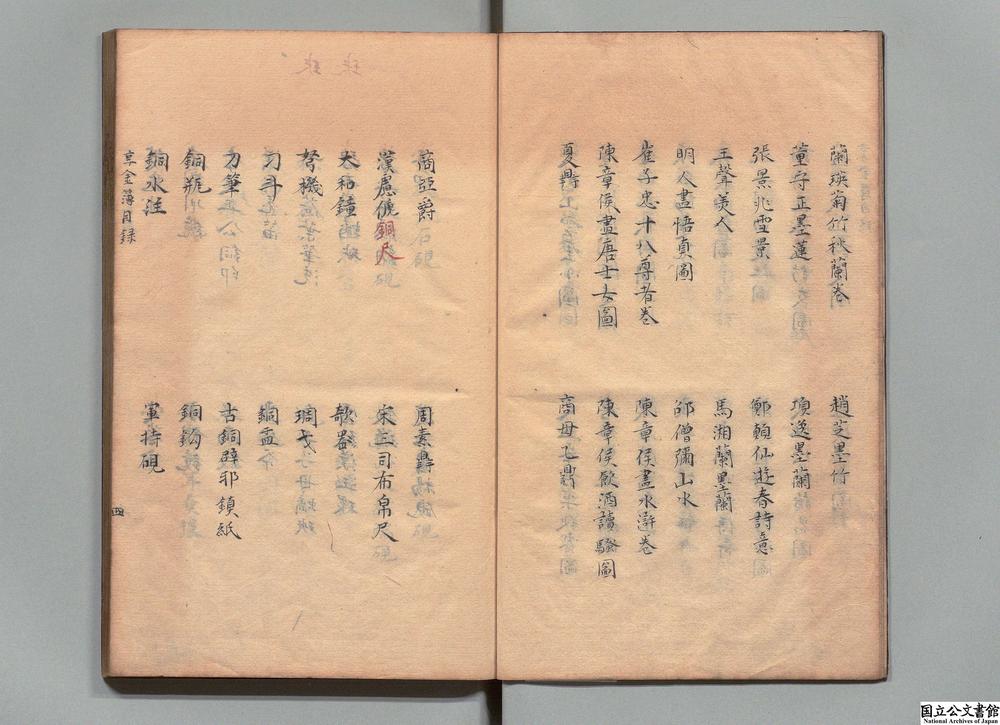 蘭瑛菊竹秋蘭卷
趙芝墨竹
董守正墨蓮
項逸墨蘭
張景兆雪景
鄭顛仙遊春詩意
王聲美人
馬湘蘭墨蘭
明人畫悟真圖
邵僧彌山水
崔子忠十八尊者卷
陳章侯畫水滸卷
陳章侯畫唐士女圖
陳章侯飲酒讀騷圖
夏鼎
商母乙鼎
商亞爵
周素鼎
漢慮俿銅尺
宋三司布帛尺
大和鐘
欹器
弩機
琱戈
刁斗
銅盂
刀筆
古銅辟邪鎮紙
銅瓶
銅鈎
銅水注
軍持硯
享金簿目録
四
国立公文書館
National Archives of Japan